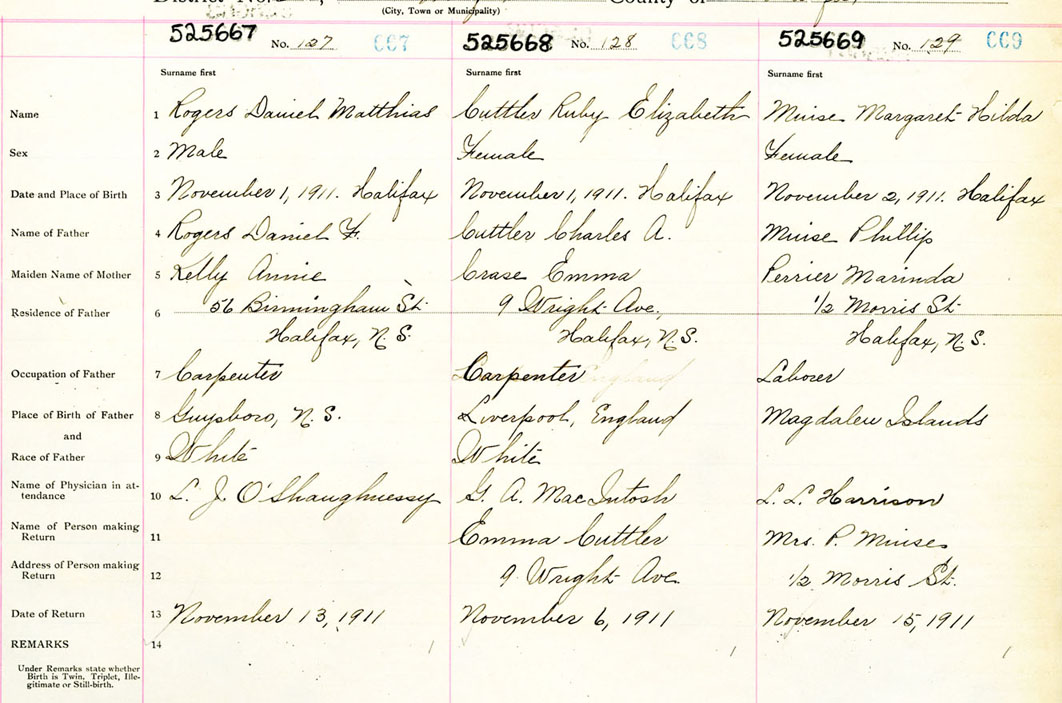 (City, Town or Municipality)
525667 No. 127 CC7 525668 No. 128 CC8 525669 No. 129 CC9
Surname first Surname first Surname first
Name 1 Rogers Daniel Matthias Cuttler Ruby Elizabeth Muise Margaret Hilda
Sex 2 Male Female Female
Date and Place of Birth 3 November 1, 1911. Halifax November 1, 1911. Halifax November 2, 1911. Halifax
Name of Father 4 Rogers Daniel F. Cuttler Charles A. Muise Phillip
Maiden Name of Mother 5 Kelly Annie Crase Emma Perrier Marinda
Residence of Father 6 56 Birmingham St 9 Wright Ave., 1/2 Morris St
Halifax, N.S. Halifax, N.S. Halifax, N.S.
Occupation of Father 7 Carpenter Carpenter England Laborer
Place of Birth of Father 8 Guysboro, N.S. Liverpool, England Magdalen Islands
and
Race of Father 9 White White
Name of Physician in at-
tendance 10 L. J. O'Shaughnessy G. A. MacIntosh L. L. Harrison
Name of Person making
Return 11 Emma Cuttler Mrs. P. Muise
Address of Person making
Return 12 9 Wright Ave. 1/2 Morris St.
Date of Return 13 November 13, 1911 November 6, 1911 November 15, 1911
REMARKS 14
Under Remarks state whether
Birth is Twin, Triplet, Ille-
gitimate or Still-birth.